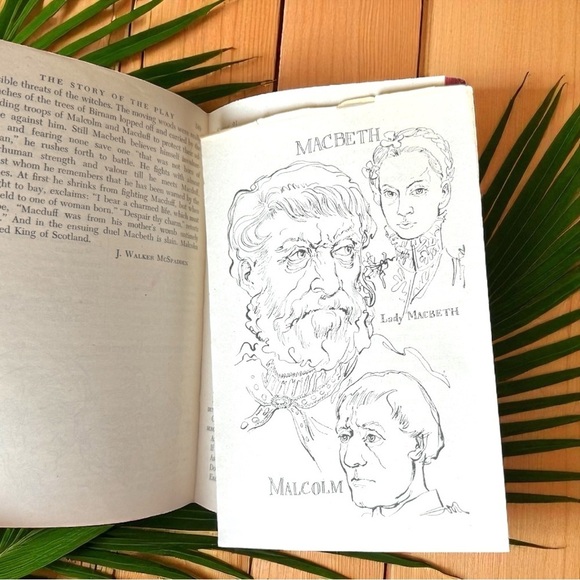 THE STORY OF THE PLAY
sible threats of the witches. The moving woods
ches of the trees of Birnam lopped off and
ding troops of Malcolm and Macduff to protect
e against him. Still Macbeth believes himself
and fearing none save one "that was
an," he rushes forth to battle. He fights
human strength and valour till he meets
st whom he remembers that he has been
es. At first he shrinks from fighting Macduff, but
ght to bay, exclaims: "I bear a charmed life, which
ield to one of woman born." "Despair thy charm,"
," "Macduff was from his mother's womb
." And in the ensuing duel Macbeth is slain. Malcolm
ed King of Scotland.
J. Walker McSpadden
MACBETH
Lady MACBETH
MALCOLM